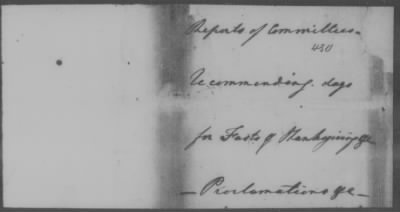 Reports of Committees
430
Recommending days
for Fasts & Thanksgiving &c
— Proclamations &c —